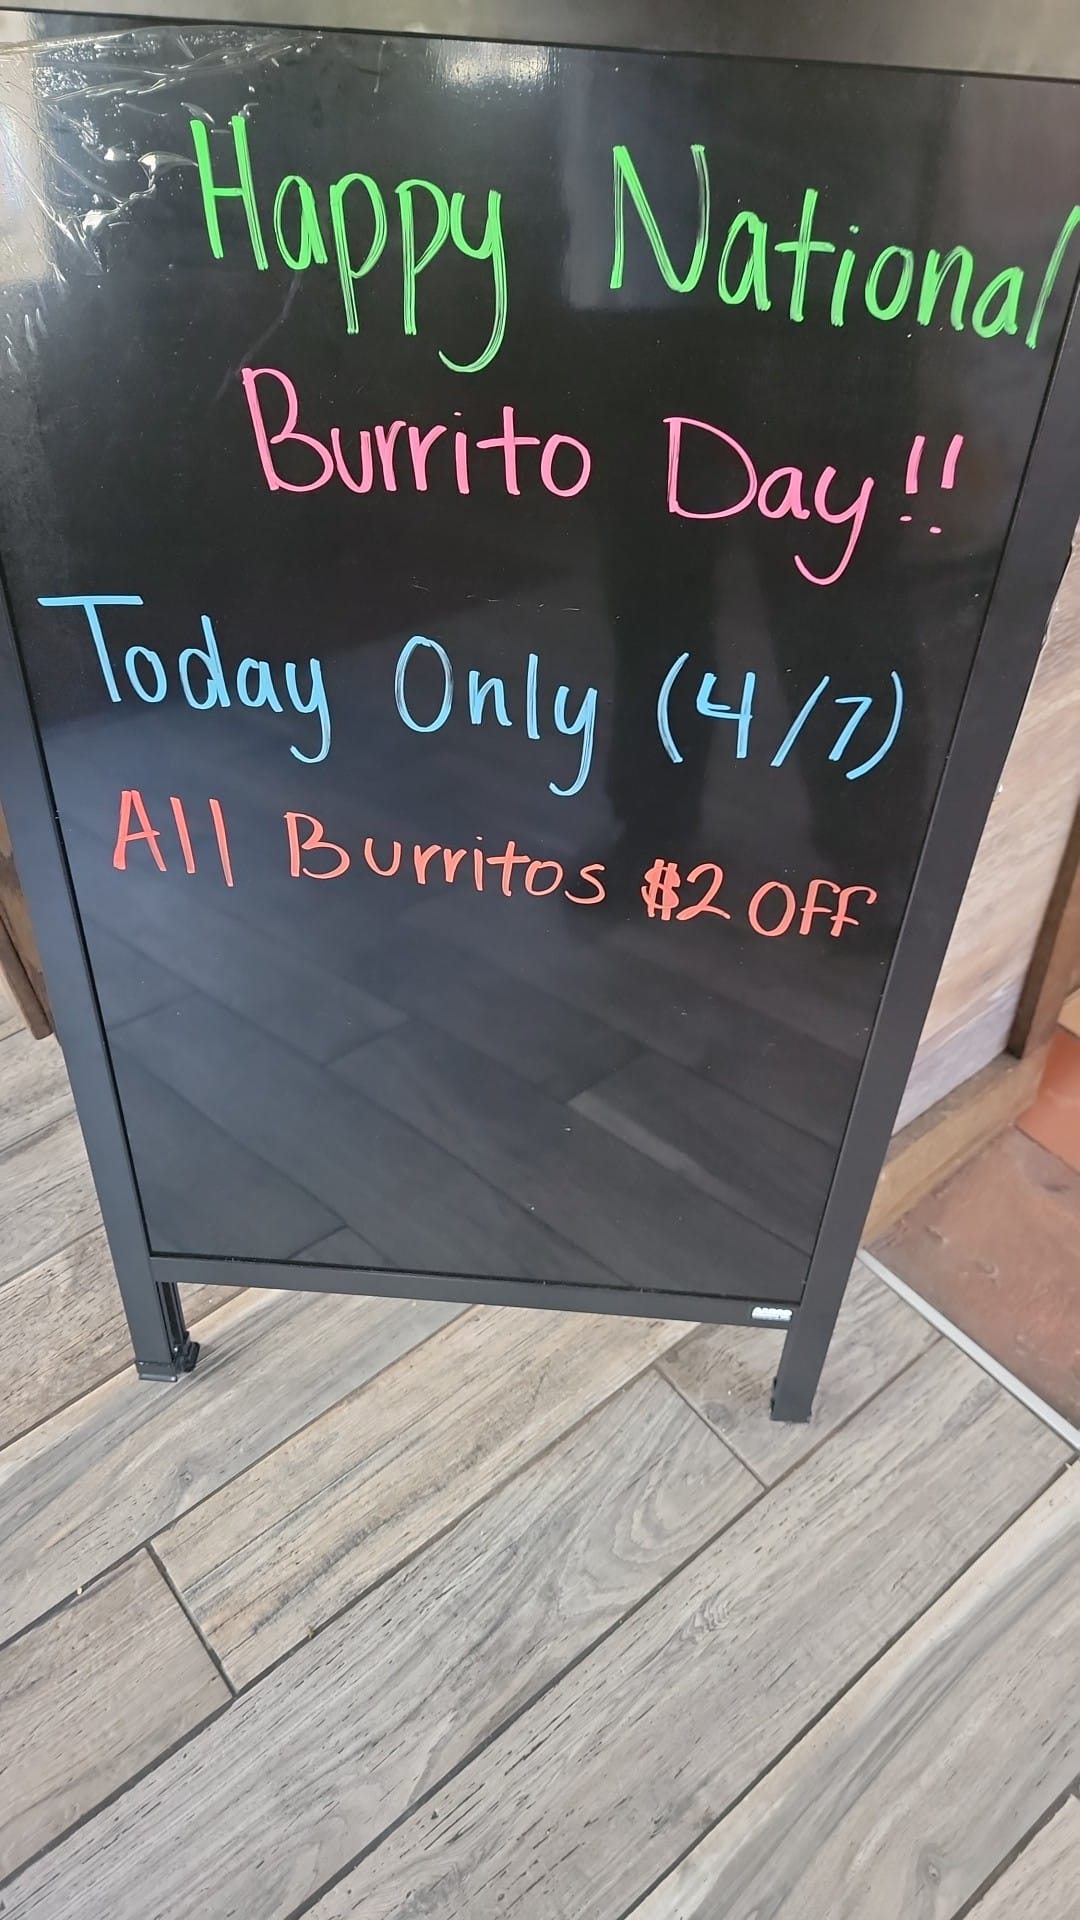 Happy National
Burrito Day!!
Today Only (4/7)
All Burritos $2 Off